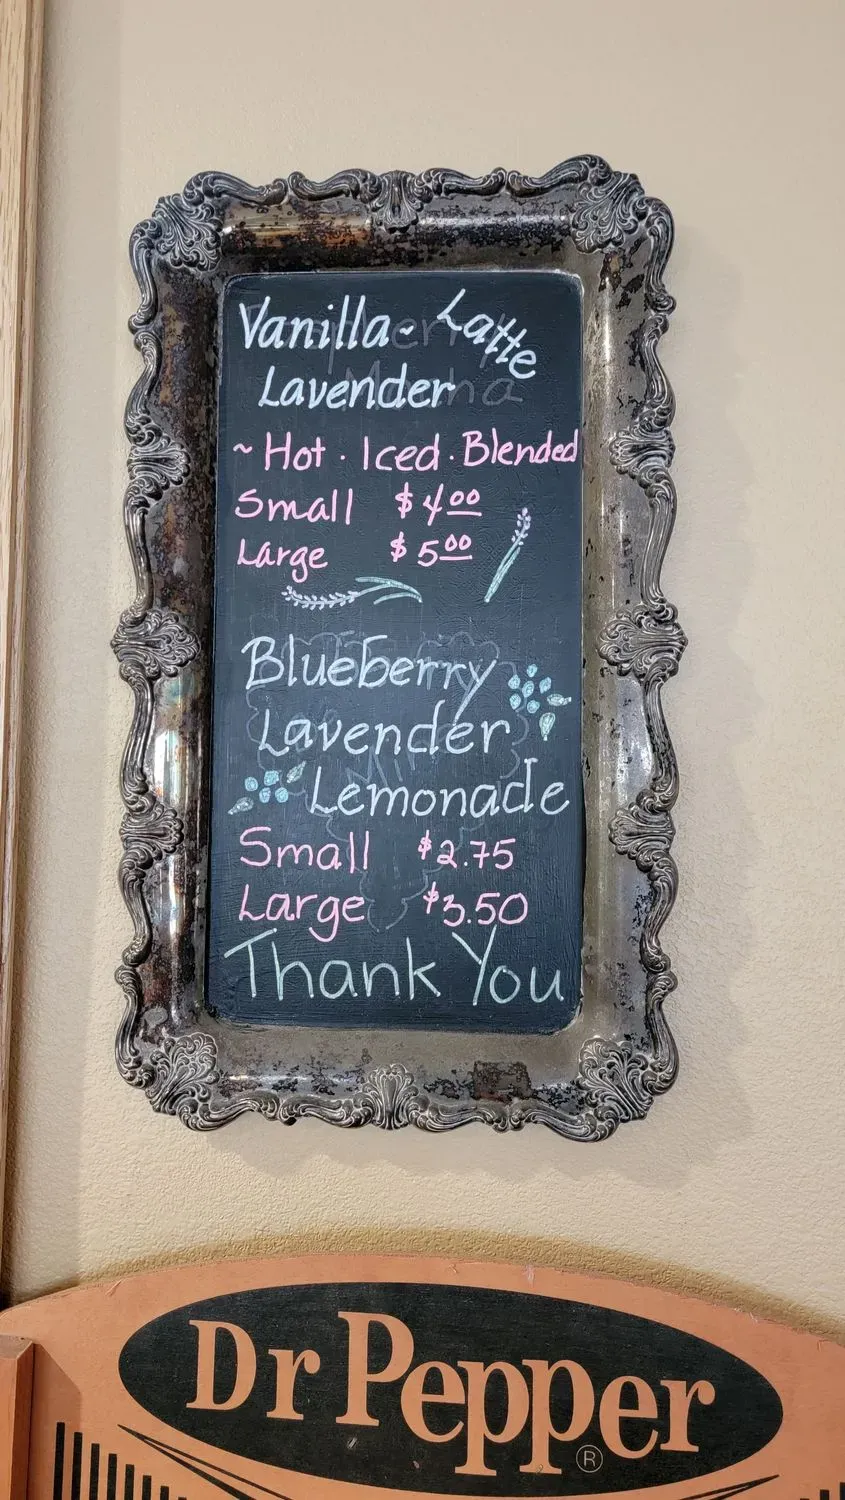 Vanilla- Latte
Lavender
~ Hot · Iced · Blended
Small $4.00
Large $5.00
Blueberry
Lavender
Lemonade
Small $2.75
Large $3.50
Thank You
Dr Pepper ®